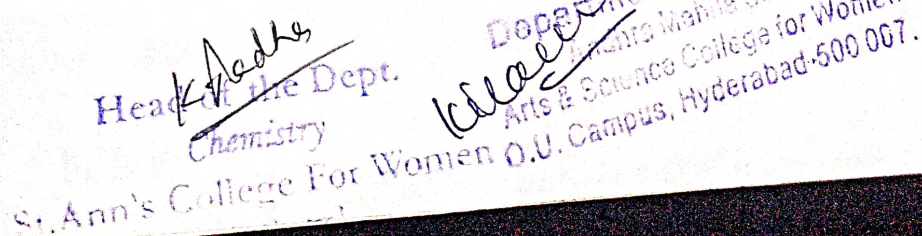 K Radha
Head of the Dept.
Chemistry
St. Ann's College For Women
Andhra Mahila
Arts & Science College for Women
O.U. Campus, Hyderabad-500 007.